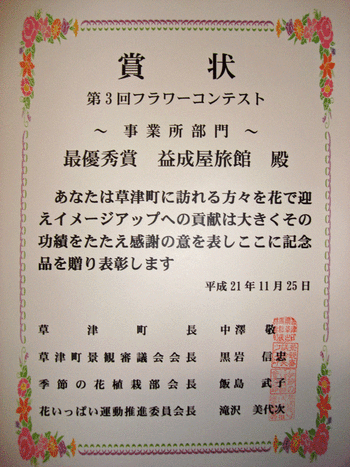 賞 状
第3回フラワーコンテスト
～ 事業所部門 ～
最優秀賞 益成屋旅館 殿
あなたは草津町に訪れる方々を花で迎
えイメージアップへの貢献は大きくその
功績をたたえ感謝の意を表しここに記念
品を贈り表彰します
平成21年11月25日
草津町長 中澤 敬
草津町景観審議会会長 黒岩 信忠
季節の花植栽部会長 飯島 武子
花いっぱい運動推進委員会長 滝沢 美代次